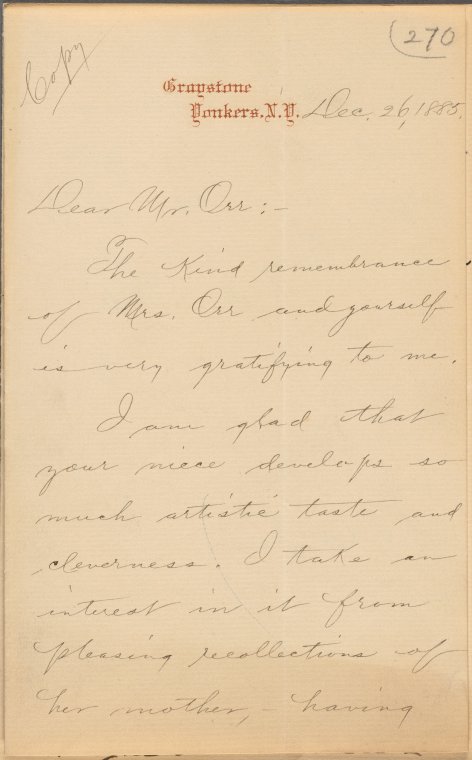 Copy
270
Graystone
Yonkers, N.Y. Dec. 26, 1885.
Dear Mr. Orr:-
The kind remembrance
of Mrs. Orr and yourself
is very gratifying to me.
I am glad that
your niece develops so
much artistic taste and
cleverness. I take an
interest in it from
pleasing recollections of
her mother, - having